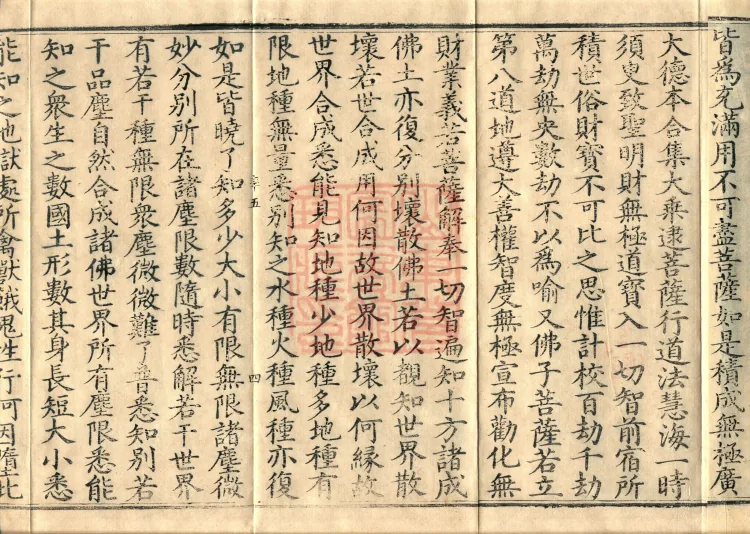 皆為充滿用不可盡菩薩如是積成無極廣
大德本合集大乘逮菩薩行道法慧海一時
須臾致聖明財無極道寶入一切智前宿所
積世俗財寶不可比之思惟計校百劫千劫
萬劫無央數劫不以為喻又佛子菩薩若立
第八道地遵大善權智度無極宣布勸化無
財業義若菩薩解奉一切智遍知十方諸成
佛土亦復分別壞散佛土若以觀知世界散
壞若世合成用何因故世界散壞以何緣故
世界合成悉能見知地種少地種多地種有
限地種無量悉別知之水種火種風種亦復
五
四
如是皆曉了知多少大小有限無限諸塵微
妙分別所在諸塵限數隨時悉解若干世界
有若干種無限衆塵微微難了普悉知別若
干品塵自然合成諸佛世界所有塵限悉能
知之衆生之數國土形數其身長短大小悉
能知之地獄處所禽獸餓鬼生行何因墮此